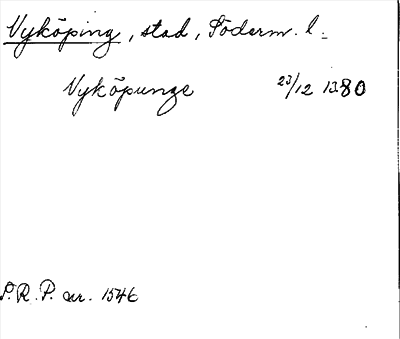 Nyköping, stad, Söderm. l.
Nyköpunge 23/12 1380
S.R.P. nr. 1546